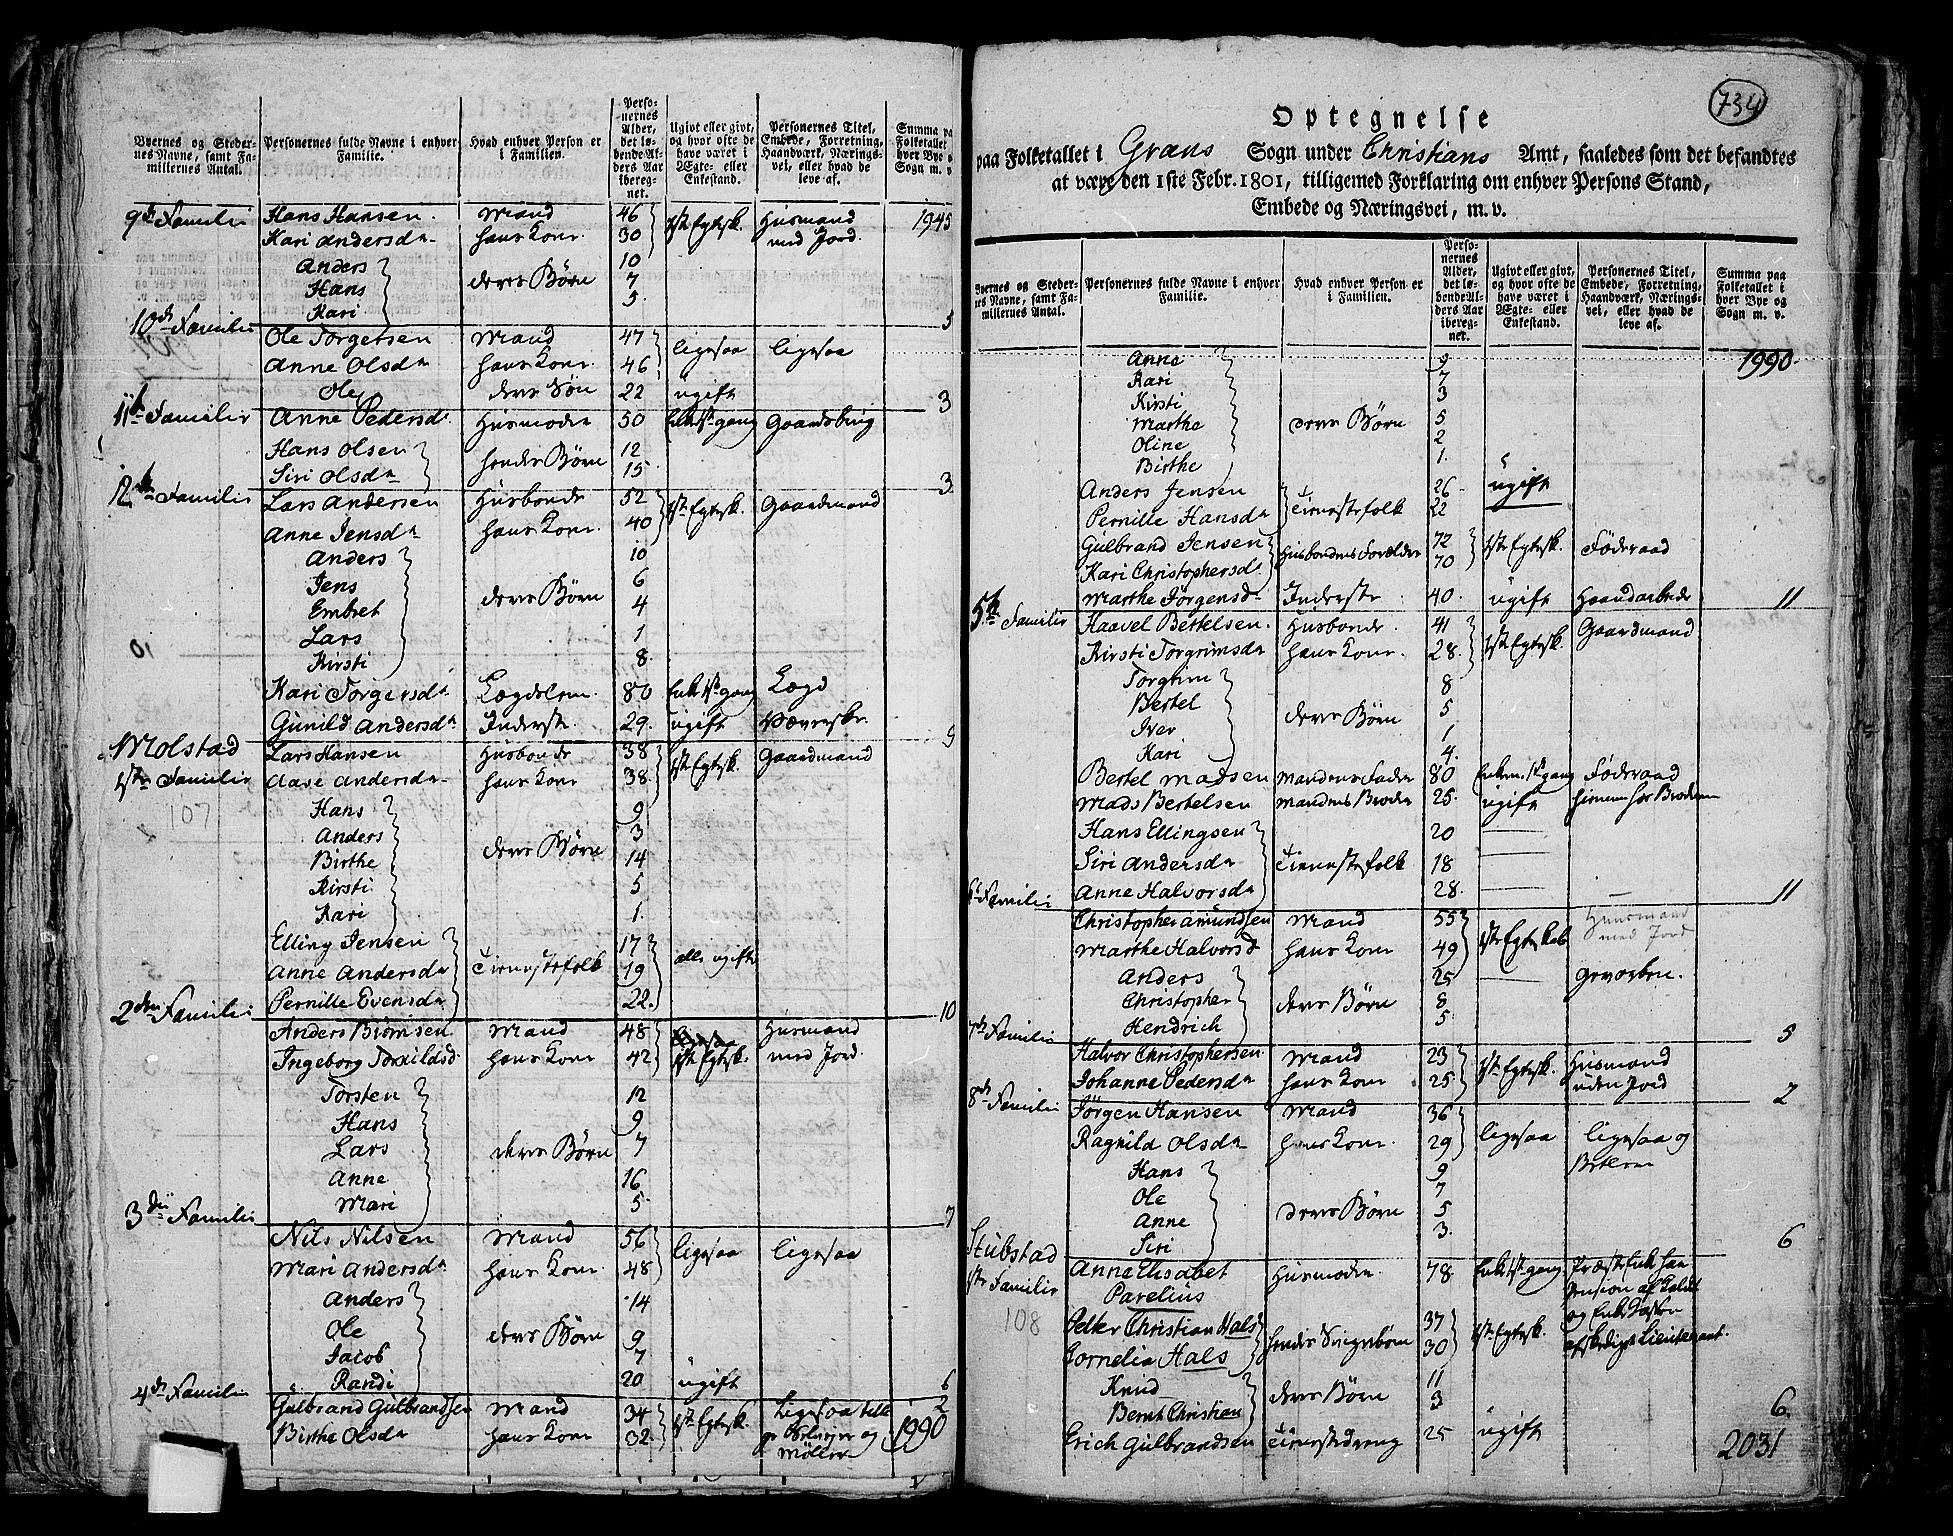 Byernes og Stedernes Navne, samt Familiernes Antal. | Personernes fulde Navne i enhver Familie. | Hvad enhver Person er i Familien. | Personernes Alder, det løbende Alders Aar iberegnet. | Ugivt eller givt, og hvor ofte de have været i Ægte- eller Enkestand. | Personernes Titel, Embede, Forretning, Haandværk, Næringsvei, eller hvad de leve af. | Summa paa Folketallet i hver Bye og Sogn m. v.
1945
9de Familie Hans Hansen. Mand 46 1ste Egtesk. Husmand
Kari Andersdr. hans Kone. 30 med Jord.
Anders 10
Hans deres Børn 7
Kari 5.
10de Familie 5
Ole Torgersen Mand 47 ligesaa ligesaa
Anne Olsdr hans Kone. 46
Ole deres Søn 22 ugift
11te Familie 3
Anne Pedersdr. Husmoder 50 Enke 1ste gang Gaardsbrug
Hans Olsen hendes Børn 12
Siri Olsdr 15.
12te Familie 3.
Lars Andersen Husbonde 52 1ste Egtesk. Gaardmand
Anne Jensdr hans Kone. 40
Anders 10
Jens 6
Embret deres Børn 4
Lars 1
Kirsti 8.
Kari Torgersdr. Lægdslem. 80 Enke 1ste gang Lægd
Gunild Andersdr Inderste. 29. ugift
9
Molstad
1ste Familie Lars Hansen Husbonde 38 1ste Egtesk. Gaardmand
107 Aase Andersdr. hans Kone 38.
Hans 9
Anders 3
Birthe deres Børn 14
Kirsti 5
Kari 1.
Elling Jensen 17
Anne Andersdr Tienestefolk 19 alle ugifte
Pernille Evensdr 22.
2den Familie 10
Anders Biørnsen Mand 48 1ste Egtesk. Husmand
Ingeborg Torkildsd. hans Kone 42 med Jord.
Torsten 12
Hans 9
Lars deres Børn 7
Anne 16
Mari 5.
3die Familie 7
Nils Nilsen Mand 56 ligesaa ligesaa
Mari Andersdr. hans Kone. 48
Anders 14
Ole deres Børn 9
Jacob 7
Randi 20 ugift
4de Familie 6
Gulbrand Gulbrandsen Mand 34 1ste Egtesk. Ligesaa till 2
Birthe Olsdr hans Kone 32. og
Møller 1990
734
Optegnelse
paa Folketallet i Grans Sogn under Christians Amt, saaledes som det befandtes
at være den 1ste Febr. 1801, tilligemed Forklaring om enhver Persons Stand,
Embede og Næringsvei, m. v.
Byernes og Stedernes Navne, samt Familiernes Antal. | Personernes fulde Navne i enhver Familie. | Hvad enhver Person er i Familien. | Personernes Alder, det løbende Alders Aar iberegnet. | Ugivt eller givt, og hvor ofte de have været i Ægte- eller Enkestand. | Personernes Titel, Embede, Forretning, Haandværk, Næringsvei, eller hvad de leve af. | Summa paa Folketallet i hver Bye og Sogn m. v.
Anne 9 1990.
Kari 7
Kirsti 3
Marthe deres Børn 5
Oline 2
Birthe 1.
Anders Jensen Tienestefolk 26 ugift
Pernille Hansdr 22
Gulbrand Jensen Husbondens Forældre 72 1ste Egtesk. Føderaad
Kari Christophersdr 70
Marthe Jørgensd. Inderste 40. ugift Haandarbede 11
5te Familie Haavel Bertelsen. Husbonde. 41 1ste Egtesk. Gaardmand
Kirsti Torgrimsdr hans Kone. 28.
Torgrim 8
Bertel 5
Iver deres Børn 1
Kari 4.
Bertel Madsen Mandens Fader 80 Enkem. 1ste gang Føderaad
Mads Bertelsen Mandens Broder 25. ugift tiener hos Broderen
Hans Ellingsen 20
Siri Andersdr Tienestefolk 18
Anne Halvorsdr 28.
6te Familie 11
Christopher Amundsen Mand 55 1ste Egteskab Huusmand
Marthe Halvorsd hans Kone 49 med Jord
Anders 25 Gevorben.
Christopher deres Børn 8
Hendrich 5
7de Familie 5
Halvor Christophersen. Mand 23 1ste Egtesk. Husmand
Johanne Pedersdr hans Kone 25 uden Jord
8de Familie 2
Jørgen Hansen Mand 36 ligesaa ligesaa og
Ragnild Olsdr hans Kone. 29 Betlere
Hans 9
Ole 7
Anne deres Børn 5
Siri 3.
6
Stubstad
1ste Familie Anne Elisabet Husmoder. 78. Enke 1ste gang Præste Enke har
108 Parelius Pension af
og Enke Kassen
Petter Christian Hals hendes Svigerbørn 37 1ste Egtesk. afskediget Lieutenant.
Cornelia Hals 30
Knud deres Børn 11
Bernt Christian 3
Erich Gulbrandsen Tienestedreng 25 ugift 6.
2031